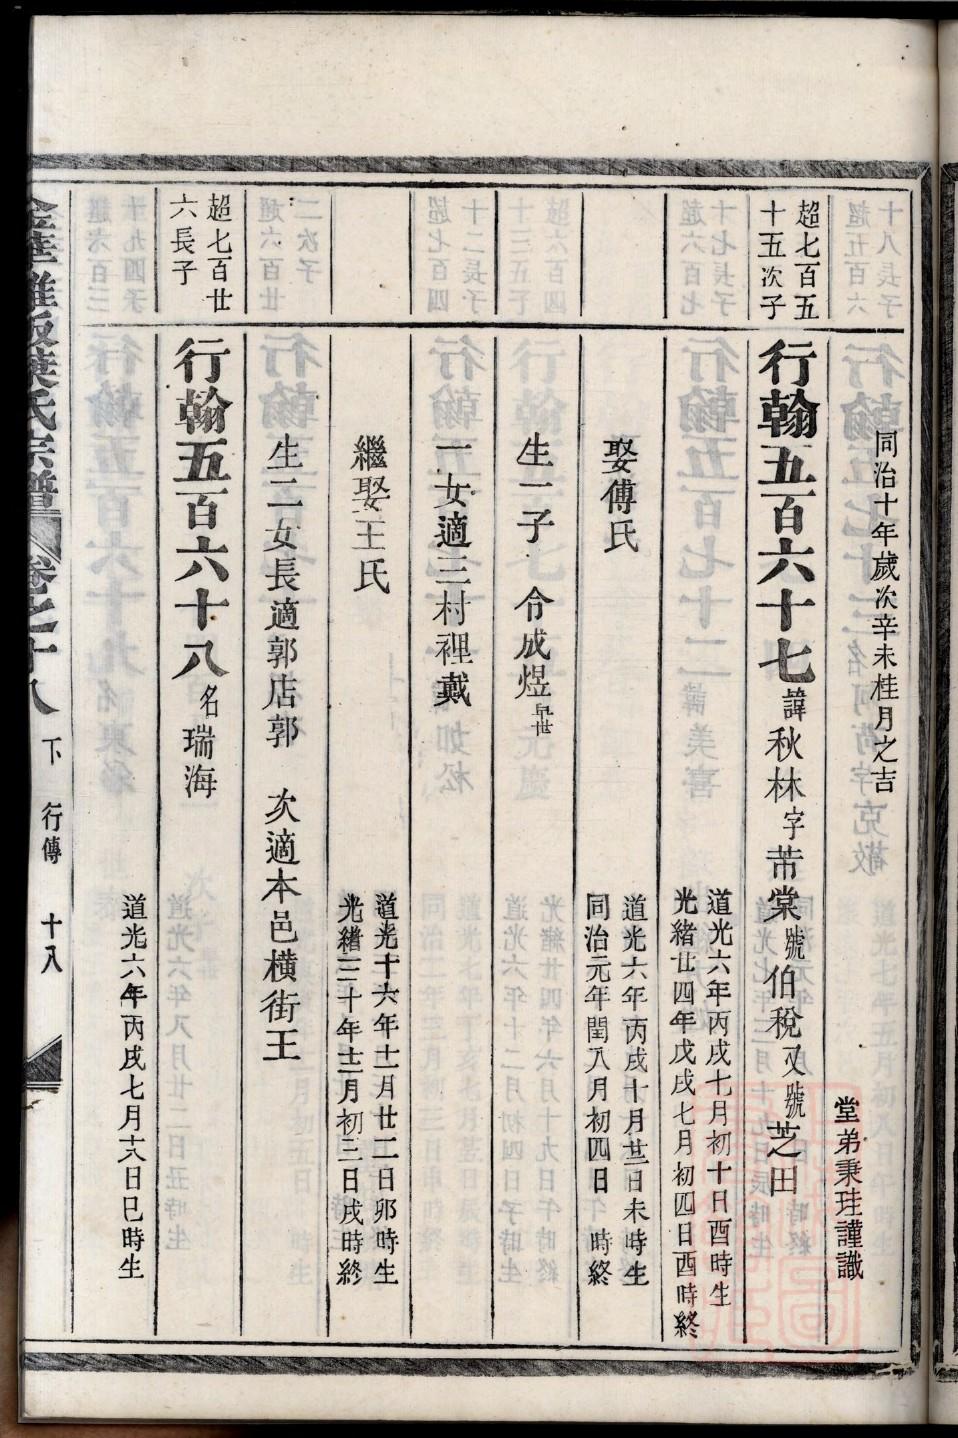 同治十年歲次辛未桂月之吉
堂弟秉珪謹識
超七百五十五次子
行翰五百六十七 諱秋林字芾棠號伯稅又號芝田
道光六年丙戌七月初十日酉時生
光緒廿四年戊戌七月初四日酉時終
娶傅氏
道光六年丙戌十月廿一日未時生
同治元年閏八月初四日 時終
生一子 令成煜早世
一女適三村裡戴
繼娶王氏
道光十六年十一月廿二日卯時生
光緒三十年十二月初三日戌時終
生二女長適郭店郭 次適本邑橫街王
超七百廿六長子
行翰五百六十八 名瑞海
道光六年丙戌七月十八日巳時生
葉氏宗譜 卷之十八 下 行傳 十八